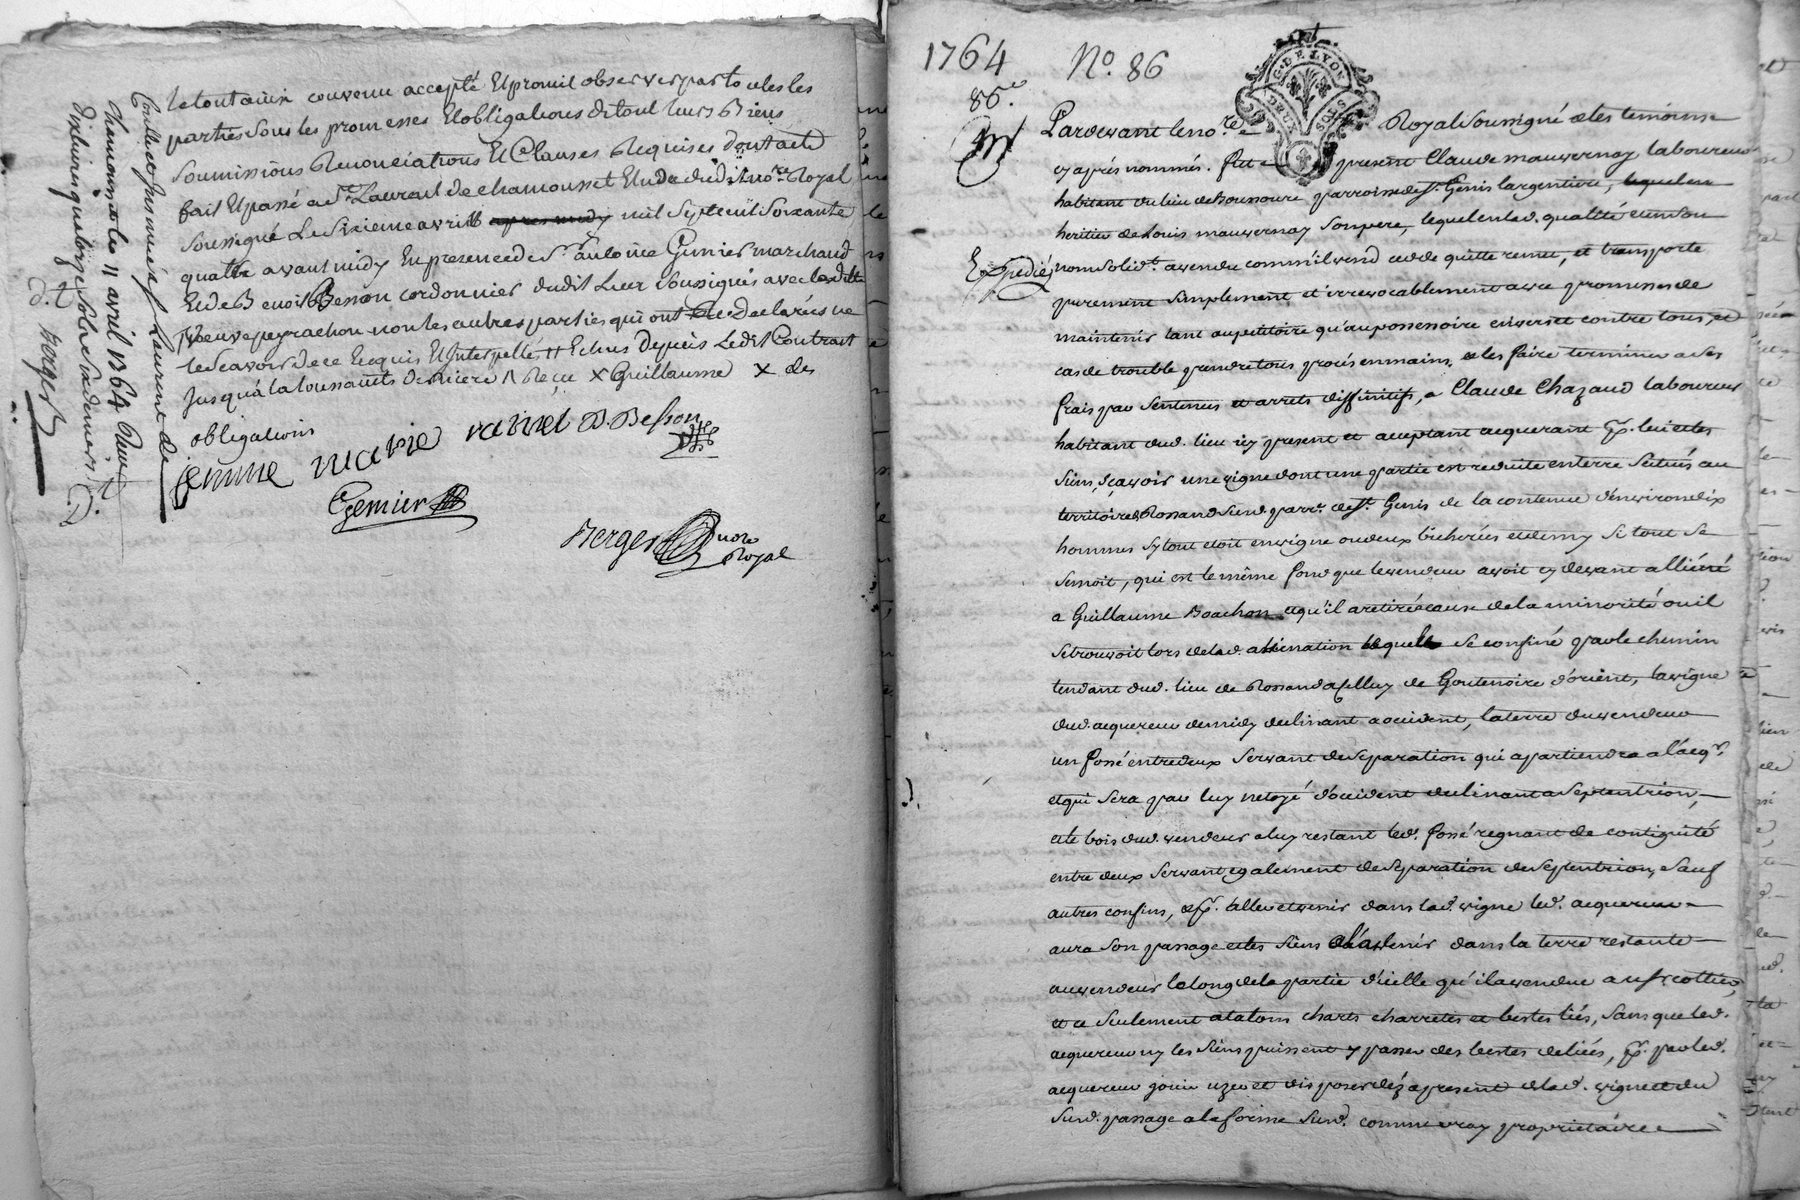 le tout ainsi convenu accepté Et promis observer par toutes les
parties sous les promesses Et obligations de tout leurs Biens
soumissions Renonciations Et Clauses Requises dont acte
fait Et passé a St. Laurent de chamousset Etude dudit nore. Royal
soussigné Le sixieme avril apres midy mil Sept cent Soixante
quatre avant midy En presence de Sr. antoine Gemier marchand
Et de Benoit Besson cordonnier dudit Lieu soussignés avec ladite
veuve peyrachon non les autres parties qui ont declarés ne
le scavoir de ce Enquis Et Interpellés, 11 Echus depuis Ledit Contrat
jusqu'à la toussaints derniere Λ Reçu X Guillaume X des
obligations
jemme marie B. Besson
Gemier
Berger nore
Royal
Conllé et Insinué à St Laurent de
chamousset le 11 avril 1764 Reçu
dix livres quatorze sols deux deniers
Berger
1764 No. 86
86e.
Expedié
G. DE LYON
DEUX SOLS
Pardevant le nore. Royal Soussigné et les temoins
cy après nommés. fut present Claude mauvernay laboureur
habitant du lieu de parroisse de St. Genis largentiere, lequel en
heritier de Louis mauvernay son pere, lequel en lad. qualité et en son
nom solidt. a vendu comme il vend cede quitte remet, et transporte
purement simplement et irrevocablement avec promesse de
maintenir tant au petitoire qu'au possessoire envers et contre tous, et
cas de trouble prendre tous procés en mains, et les faire terminer a ses
frais par sentences et arrets diffinitifs, a Claude Chazaud laboureur
habitant dud. lieu icy present et acceptant acquerant pr. lui et les
siens, sçavoir une vigne dont une partie est reduite en terre scitués au
territoire de Rossand susd. parr. de St. Genis de la contenue d'environ dix
hommes sy tout etoit en vigne ou deux bicherées et demy si tout se
semoit, qui est le même fond que le vendeur avoit cy devant alliéné
a Guillaume Boachon et qu'il a retiré a cause de la minorité ou il
se trouvoit lors de lad. alienation lequel se confine par le chemin
tendant dud. lieu de Rossand a celluy de Goutenoire d'orient, la vigne
dud. acquereur de midy declinant a occident, la terre du vendeur
un fossé entredeux servant de separation qui apartiendra a l'acqr.
et qui sera par luy netoyé d'occident declinant a septentrion,
et le bois dud. vendeur a luy restant led. fossé regnant de contiguité
entre deux servant egalement de separation de septentrion, sauf
autres confins, et pr. aller et venir dans lad. vigne led. acquereur
aura son passage et les siens a l'avenir dans la terre restante
au vendeur le long de la partie d'icelle qu'il a vendue a cottier,
et ce seulement a talons chars charretes et bestes liés, sans que led.
acquereur ny les siens puissent y passer des bestes deliées, pr. par led.
acquereur jouir uzer et disposer déz a present de lad. vigne et du
susd. passage a la forme susd. comme vray proprietaire